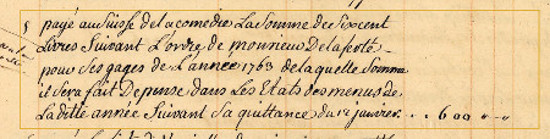 5 payé au Suisse de la comedie La Somme de Six cent
Livres Suivant L'ordre de monsieur Delaferté
pour Ses gages de L'année 1763 de laquelle Somme
il Sera fait Depense dans Les Etats des menus de
La ditte année Suivant Sa quittance du 12 janvier. . . 600 " "